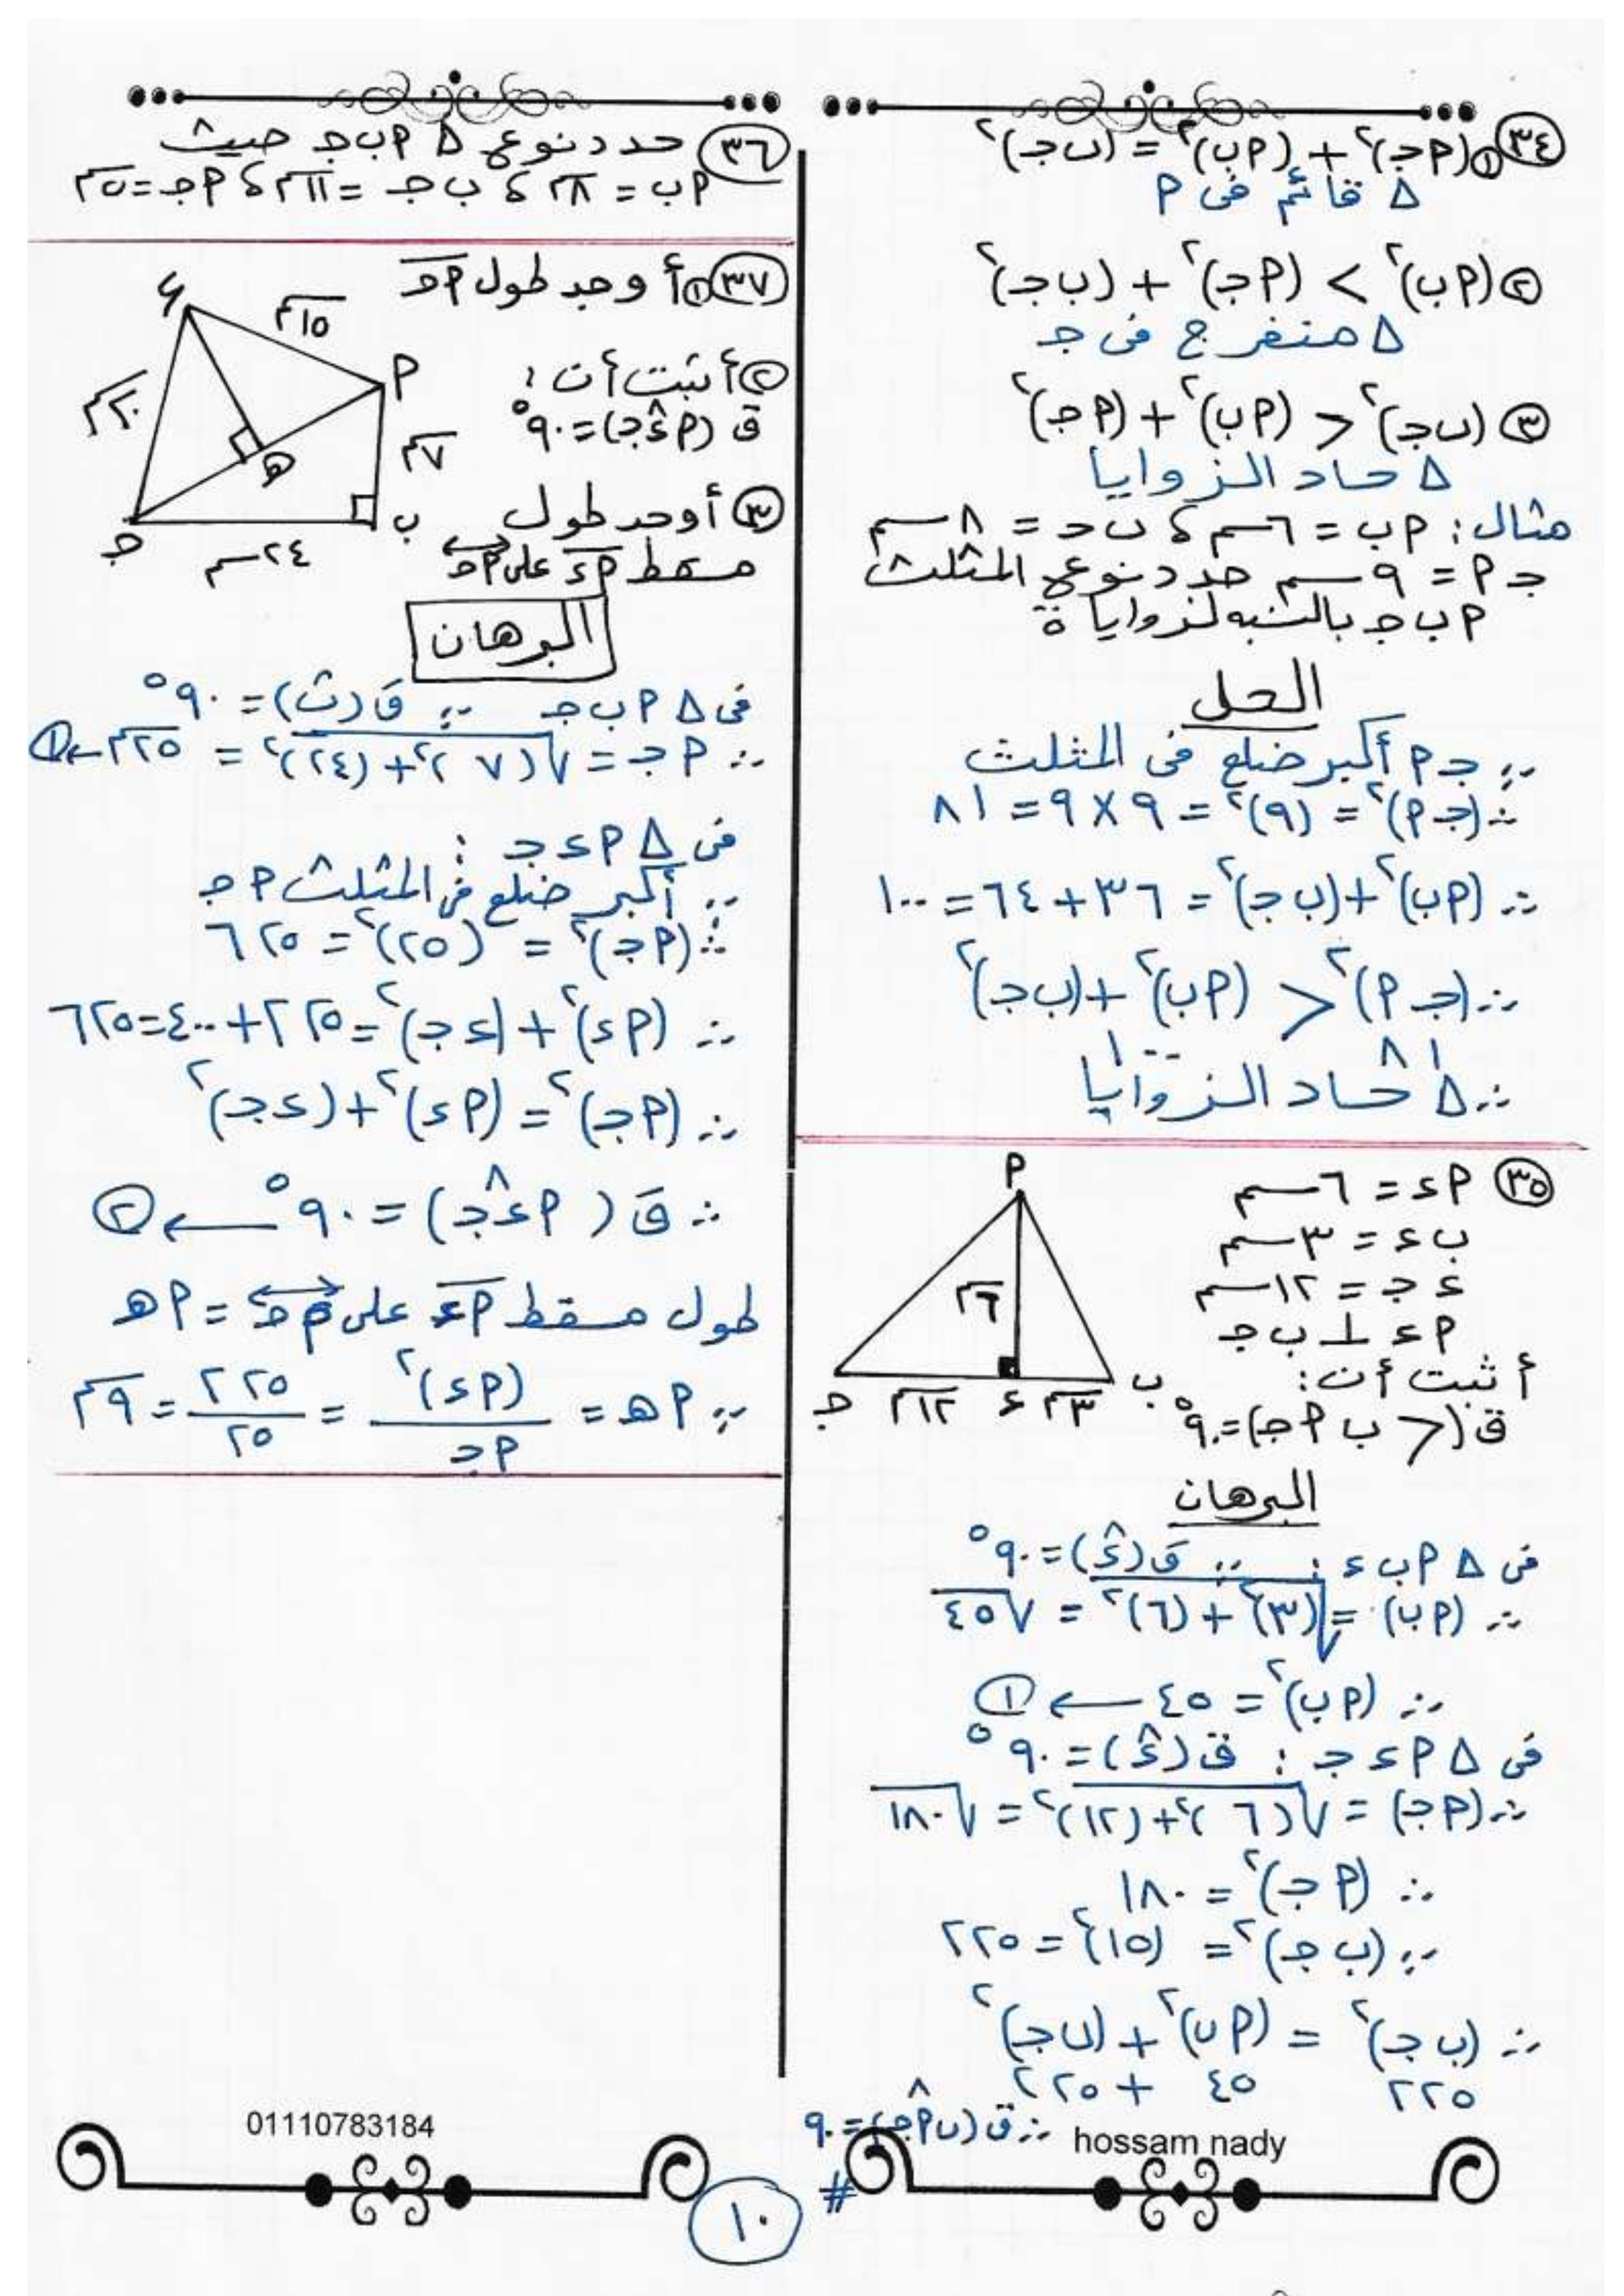 ٣٤ ① (أجـ)² + (أب)² = (بجـ)²
Δ قائم فى أ
② (أب)² > (أجـ)² + (بجـ)²
Δ منفرج فى جـ
③ (بجـ)² < (أب)² + (أجـ)²
Δ حاد الزوايا
مثال: أب = ٦سم ، بجـ = ٨سم
جـأ = ٩سم حدد نوع المثلث
أبجـ بالنسبه لزواياة
الحل
∵ جـأ أكبر ضلع فى المثلث
∴ (جـأ)² = (٩)² = ٩ × ٩ = ٨١
∴ (أب)² + (بجـ)² = ٣٦ + ٦٤ = ١٠٠
∴ (جـأ)² < (أب)² + (بجـ)²
٨١ ١٠٠
∴ Δ حاد الزوايا
٣٥ أء = ٦سم
بء = ٣سم
ءجـ = ١٢سم
أء ⊥ بجـ
أثبت أن:
ق(> بأجـ) = ٩٠°
أ
٦سم
ب ٣سم ء ١٢سم جـ
البرهان
فى Δ أبء : ∵ ق(ءˆ) = ٩٠°
∴ (أب) = √(٣)² + (٦)² = √٤٥
∴ (أب)² = ٤٥ ← ①
فى Δ أءجـ : ق(ءˆ) = ٩٠°
∴ (أجـ) = √(٦)² + (١٢)² = √١٨٠
∴ (أجـ)² = ١٨٠
∵ (بجـ)² = (١٥)² = ٢٢٥
∴ (بجـ)² = (أب)² + (بجـ)²
٢٢٥ ٤٥ + ٢٢٥
∴ ق(بأˆجـ) = ٩٠
#
hossam nady
٣٦ حدد نوع Δ أبجـ حيث
أب = ٨سم ، بجـ = ١١سم ، أجـ = ٥سم
٣٧ ① أوجد طول أجـ
② أثبت أن :
ق(أءˆجـ) = ٩٠°
③ أوجد طول
مسقط أء على أجـ
ء
١٥سم
أ
٢٠سم
٧سم
هـ
ب
جـ
٢٤سم
البرهان
فى Δ أبجـ ∵ ق(بˆ) = ٩٠°
∴ أجـ = √(٧)² + (٢٤)² = ٢٥سم ← ①
فى Δ أءجـ :
∵ أكبر ضلع فى المثلث أجـ
∴ (أجـ)² = (٢٥)² = ٦٢٥
∴ (أء)² + (ءجـ)² = ٢٢٥ + ٤٠٠ = ٦٢٥
∴ (أجـ)² = (أء)² + (ءجـ)²
∴ ق(أءˆجـ) = ٩٠° ← ②
طول مسقط أء على أجـ = أهـ
∵ أهـ = (أء)² / أجـ = ٢٢٥ / ٢٥ = ٩سم
01110783184
١٠